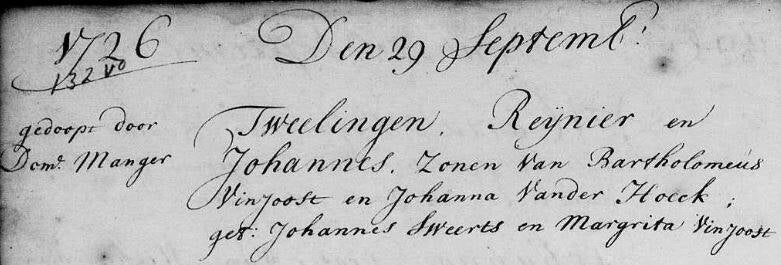 1726
Den 29 Septemb:
132 vo
gedoopt door
Dom: Manger
Tweelingen. Reÿnier en
Johannes. Zonen van Bartholomeüs
Vinjoost en Johanna Vander Hoeck;
get: Johannes Sweerts en Margrita Vinjoost